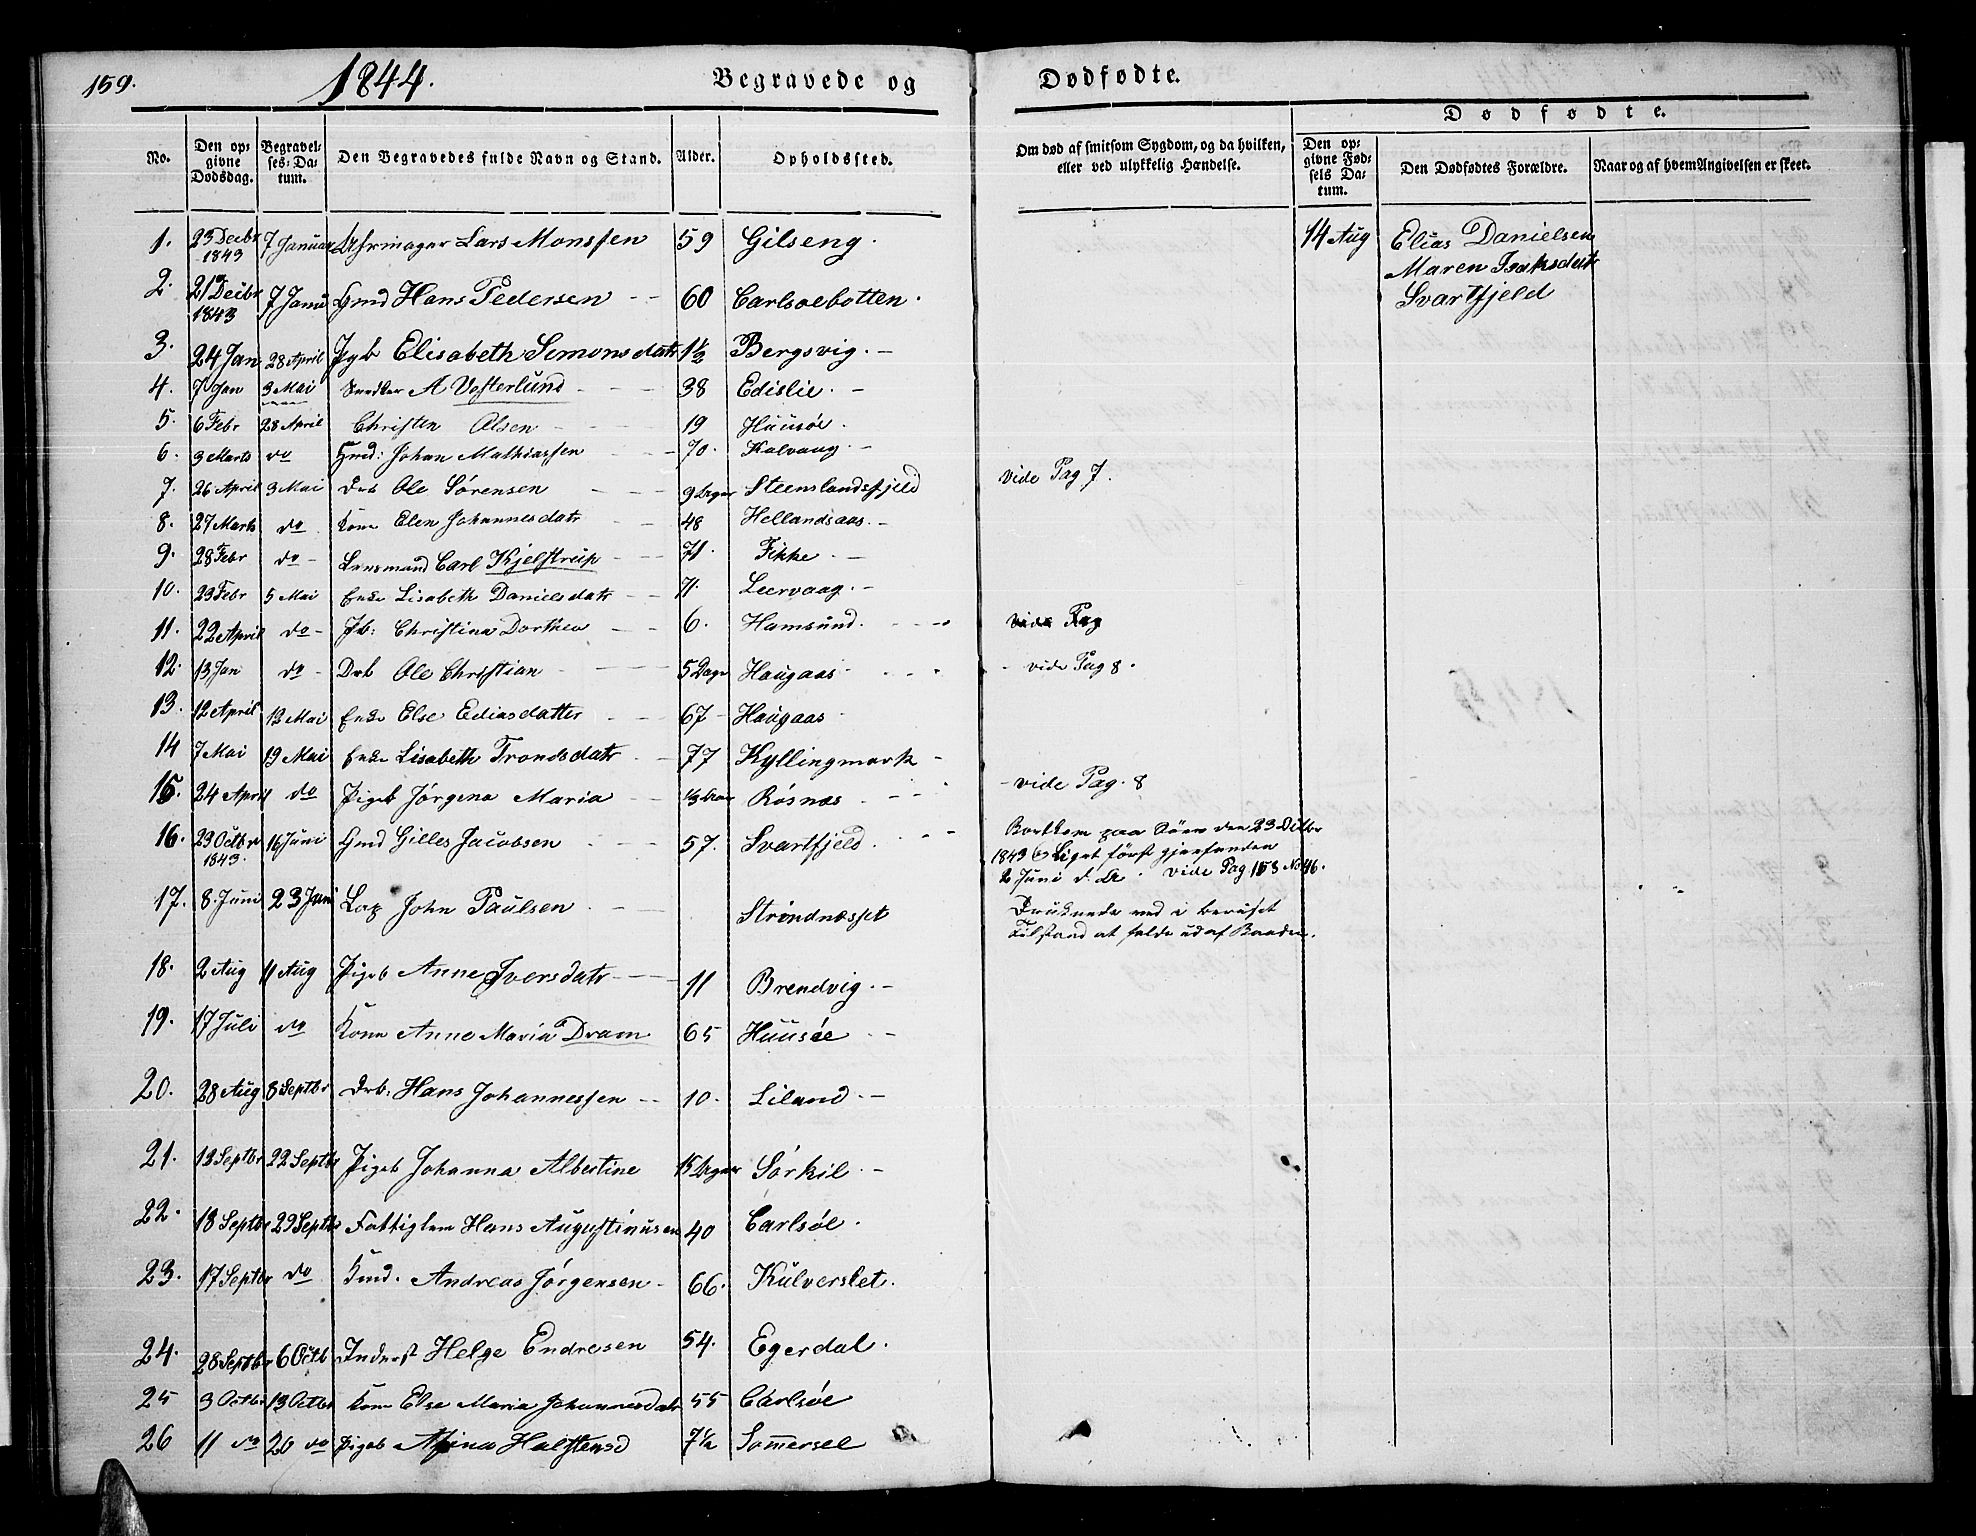 159.
1844.
Begravede og
Dødfødte.
Dødfødte.
No.
Den op=
givne
Dødsdag.
Begravel=
ses=Da=
tum.
Den Begravedes fulde Navn og Stand.
Alder.
Opholdssted.
Om død af smitsom Sygdom, og da hvilken,
eller ved ulykkelig Hændelse.
Den op=
givne Fød=
sels Da=
tum.
Den Dødfødtes Forældre.
Naar og af hvem Angivelsen er skeet.
1. 23 Decbr 1843 7 Januar Uhrmager Lars Monssen 59 Gilseng.
14 Aug Elias Danielsen
Maren Isaksdatr
Svartfjeld
2. 21 Decbr 1843 7 Janu Gmd Hans Pedersen 60 Carlsøebotten.
3. 24 Jan 28 April Pgb Elisabeth Simonsdatr 1½ Bergsvig.
4. 7 Jan 3 Mai Snedker A Vesterlund 38 Edislie.
5. 6 Febr 28 April Christen Olsen 19 Huusøe.
6. 3 Marts do Gmd: Johan Mathiassen 70. Kalvaag.
7. 26 April 3 Mai Drb Ole Sørensen 9 Dage Steenslandsfjeld vide Pag 7.
8. 27 Marts do Kone Elen Johannesdatr 48 Hellandsaas.
9. 28 Febr do Lensmand Carl Kjelstrup 71. Fikke.
10. 23 Febr 5 Mai Enke Lisabeth Danielsdatr 71. Leervaag.
11. 22 April do Pb: Christina Dorthea 6. Hamsund. vide Pag
12. 13 Jan do Drb Ole Christian 5 Dage Haugaas vide Pag 8.
13. 12 April 12 Mai Enke Else Ediasdatter 67 Haugaas
14 7 Mai 19 Mai Enke Lisabeth Trondsdatr 77 Kyllingmark
15. 24 April do Pigeb Jørgena Maria Røsnæs vide Pag. 8
16. 23 Octbr 1843. 16 Juni Gmd Gilles Jacobsen 57. Svartfjeld.
Bortkom paa Søen den 23 Octbr
1843 og Liget først gjenfunden
2 Juni d. A. vide Pag 153 No 46.
17. 8. Juni 23 Juni Lap John Paulsen Strøndnæsset
Druknede ved i beruset
Tilstand at falde ud af Baaden.
18. 2 Aug 11 Aug Pigeb Anne Iversdatr 11 Brendvig.
19. 17 Juli do Kone Anne Maria Dram 65 Huusøe
20. 28 Aug 8 Septbr Drb: Hans Johannessen 10. Liland.
21. 12 Septbr 22 Septbr Pigeb Johanna Albertine 15 Dage Sørkil
22. 18 Septbr 29 Septbr Fattiglem Hans Augustinusen 40 Carlsøe.
23. 17 Septbr do Kmd. Andreas Jørgensen 66. Kulverslet.
24. 28 Septbr 6 Octb Inderst Helge Endresen 54. Egerdal.
25 3 Octbr 13 Octbr Kone Else Maria Johannesdatr 55 Carlsøe
26 11 do 20 do Pigeb Halstensd 7½ Sommersel